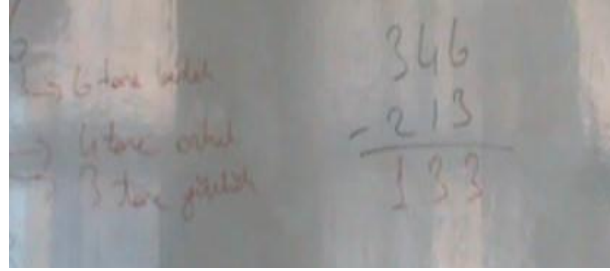 6 tane birlik
4 tane onluk
3 tane yüzlük
346
- 213
133